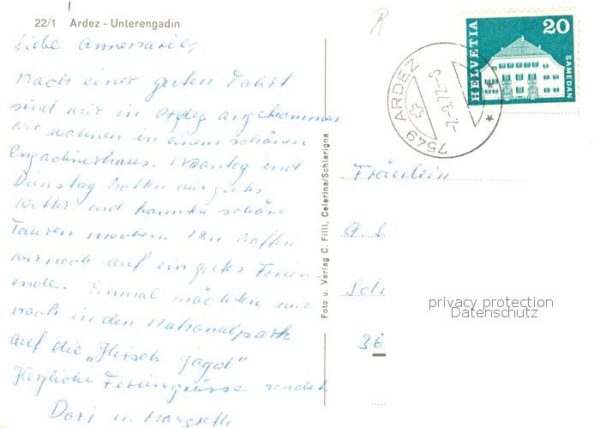 22/1 Ardez - Unterengadin
Liebe Annemarie,
Nach einer guten Fahrt
sind wir in Ardez angekommen
Wir wohnen in einem schönen
Engadinerhaus. Montag und
Dienstag hatten wir gutes
Wetter und konnten schöne
Touren machen. Wir hoffen
wir noch auf ein gutes Ferien-
ende. Einmal möchten wir
noch in den Nationalpark
auf die „Hirsch Jagd"
Herzliche Feriengrüsse sendet
Dori u. Margreth
Foto u. Verlag C. Filli, Celerina/Schlarigna
HELVETIA
20
SAMEDAN
7549 ARDEZ
Fräulein
A. S
Sch
privacy protection
Datenschutz
36